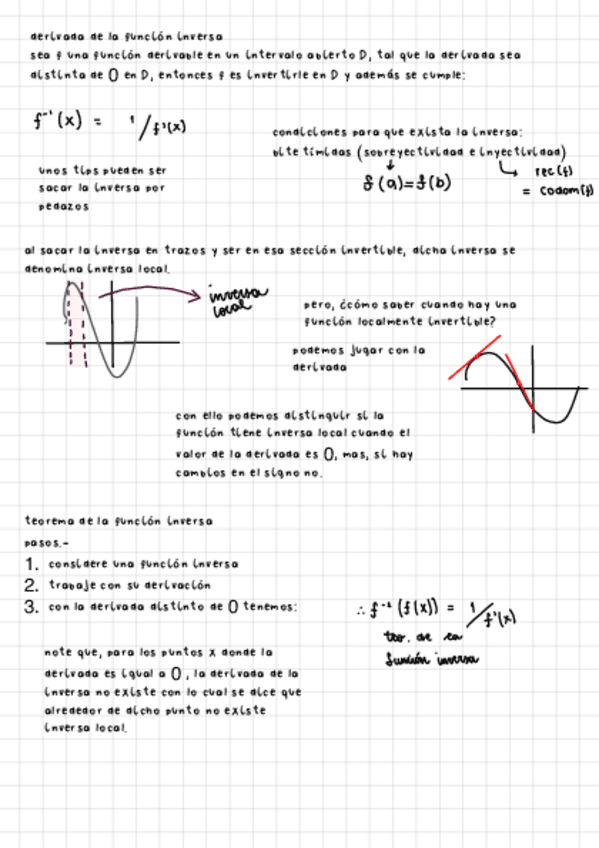 derivada de la función inversa
sea f una función derivable en un intervalo abierto D, tal que la derivada sea
distinta de 0 en D, entonces f es invertirle en D y además se cumple:
f⁻¹(x) = 1/f'(x)
condiciones para que exista la inversa:
(sobreyectividad e inyectividad)
f(a)=f(b)
rec(f)
= codom(f)
unos tips pueden ser
sacar la inversa por
pedazos
al sacar la inversa en trazos y ser en esa sección invertible, dicha inversa se
denomina inversa local.
inversa
local
pero, ¿cómo saber cuando hay una
función localmente invertible?
podemos jugar con la
derivada
con ello podemos distinguir si la
función tiene inversa local cuando el
valor de la derivada es 0, mas, si hay
cambios en el signo no.
teorema de la función inversa
pasos.-
1. considere una función inversa
2. trabaje con su derivación
3. con la derivada distinto de 0 tenemos:
∴ f⁻¹(f(x)) = 1/f'(x)
teo. de la
función inversa
note que, para los puntos x donde la
derivada es igual a 0, la derivada de la
inversa no existe con lo cual se dice que
alrededor de dicho punto no existe
inversa local.